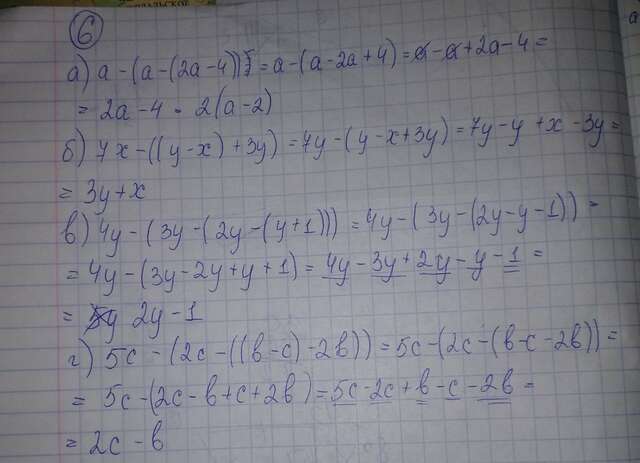 6
а) a - (a - (2a - 4)) = a - (a - 2a + 4) = a - a + 2a - 4 =
= 2a - 4 = 2(a - 2)
б) 7x - ((y - x) + 3y) = 7y - (y - x + 3y) = 7y - y + x - 3y =
= 3y + x
в) 4y - (3y - (2y - (y + 1))) = 4y - (3y - (2y - y - 1)) =
= 4y - (3y - 2y + y + 1) = 4y - 3y + 2y - y - 1 =
= 2y - 1
г) 5c - (2c - ((в - c) - 2в)) = 5c - (2c - (в - c - 2в)) =
= 5c - (2c - в + c + 2в) = 5c - 2c + в - c - 2в =
= 2c - в